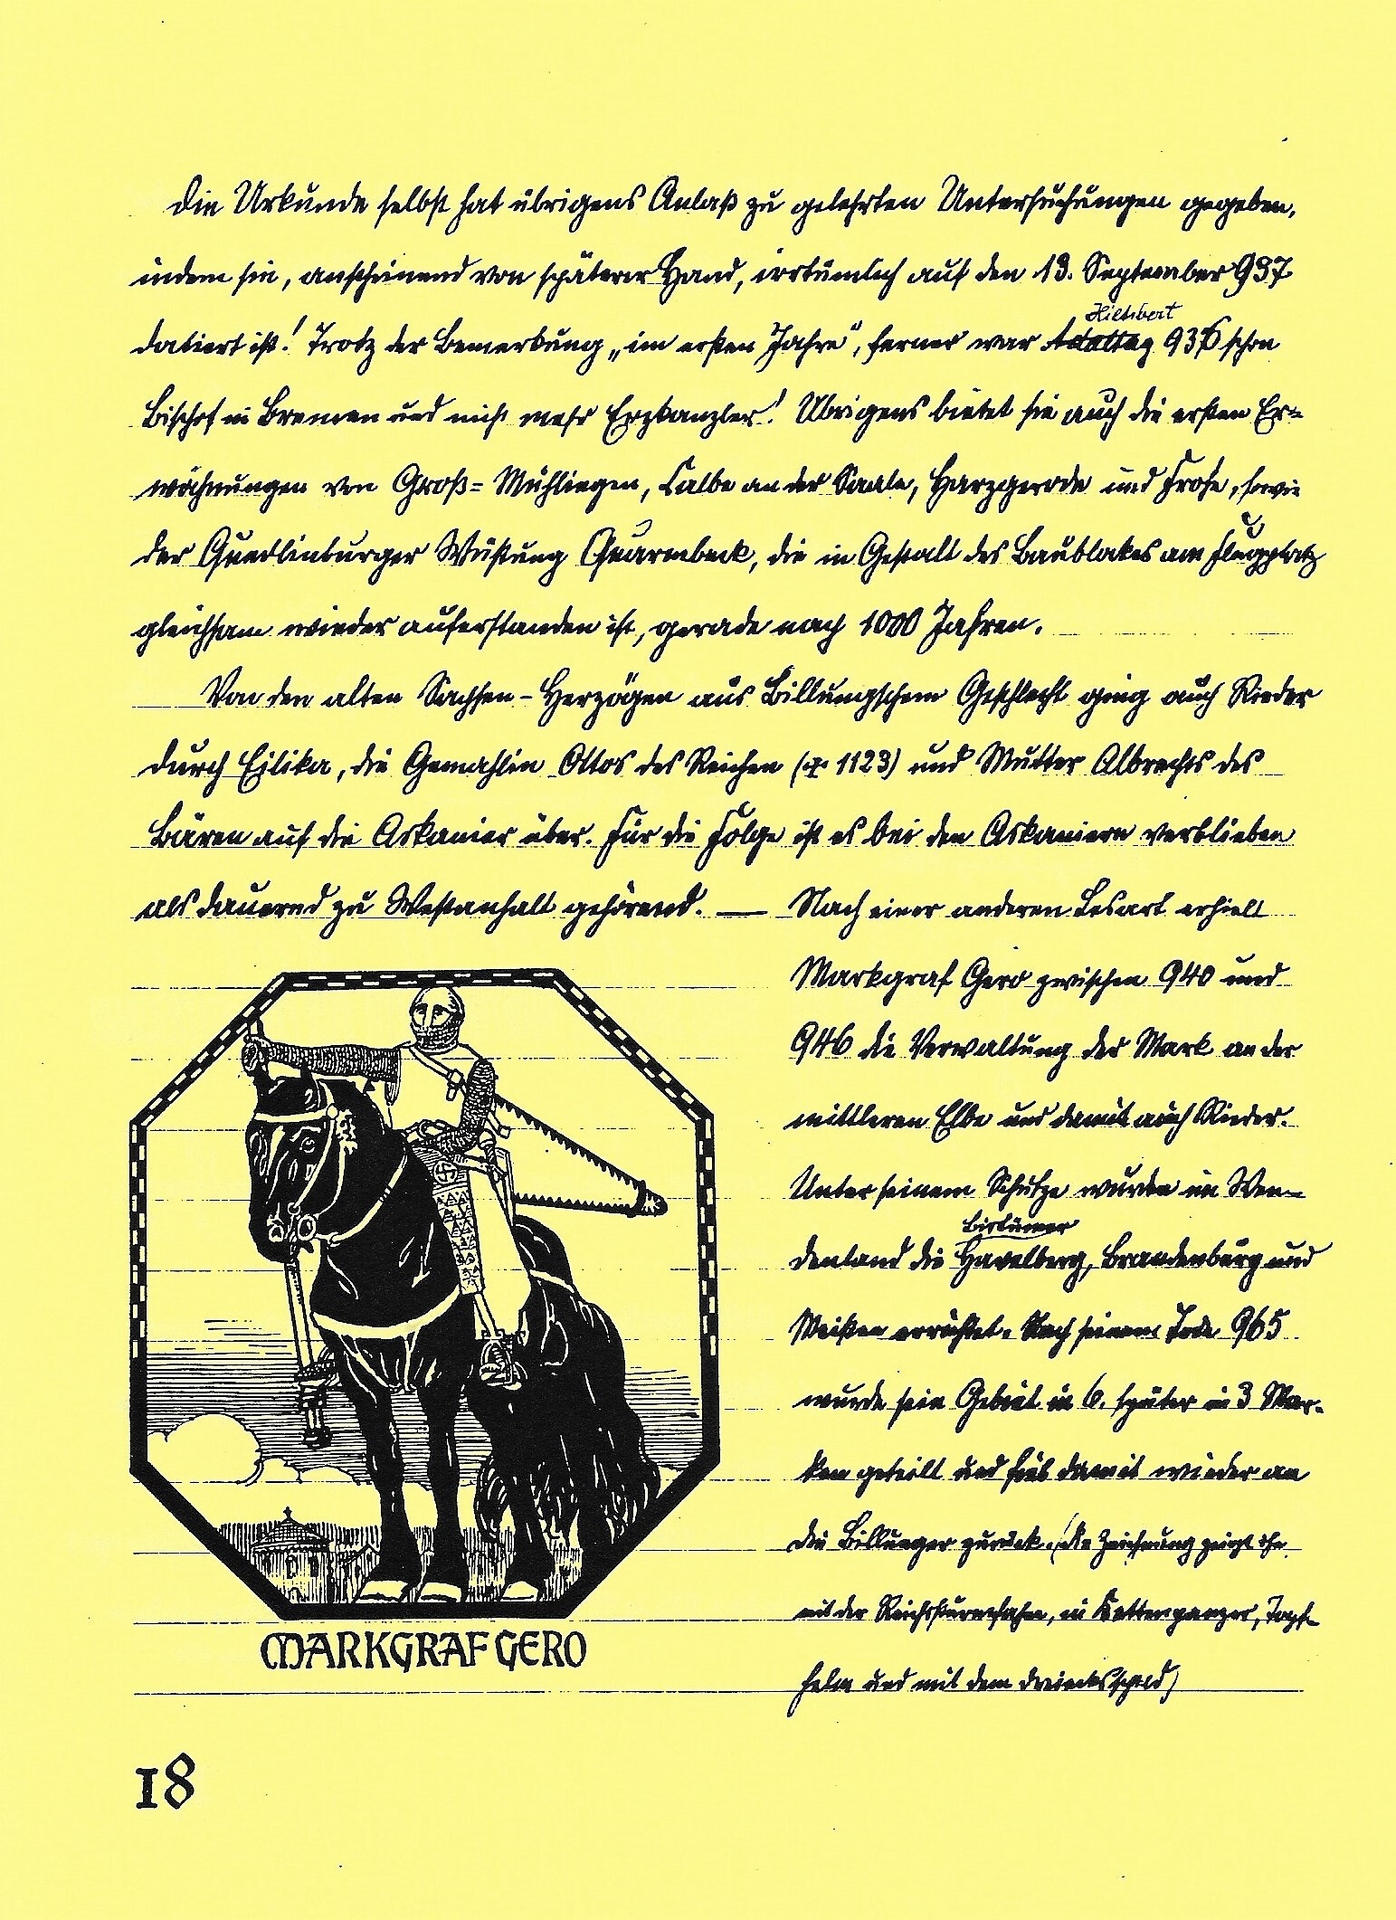 Die Urkunde selbst hat übrigens Anlaß zu gelehrten Untersuchungen gegeben,
indem sie, anscheinend von späterer Hand, irrtümlich auf den 13. September 937
datiert ist! Trotz der Bemerkung „im ersten Jahre", ferner war Hildibert 936 schon
Bischof in Bremen und nicht mehr Erzkanzler! Übrigens bietet sie auch die ersten Er=
wähnungen von Groß= Mühlingen, Calbe an der Saale, Harzgerode und Frose, sowie
der Quedlinburger Wüstung Quarmbeck, die in Gestalt des Baublakes am Flugplatz
gleichsam wieder auferstanden ist, gerade nach 1000 Jahren.
Von den alten Sachsen-Herzögen aus Billungschem Geschlecht ging auch Rieder
durch Eilika, die Gemahlin Ottos des Reichen († 1123) und Mutter Albrechts des
Bären auf die Askanier über. Für die Folge ist es bei den Askaniern verblieben
als dauernd zu Westanhalt gehörend. — Nach einer anderen Lesart erhielt
Markgraf Gero zwischen 940 und
946 die Verwaltung der Mark an der
mittleren Elbe und damit auch Rieder.
Unter seinem Schutze wurden im Wen-
Bistümer
denland die Havelberg, Brandenburg und
Meißen errichtet. Nach seinem Tode 965
wurde sein Gebiet in 6, später in 3 Mar-
ken geteilt und fiel damit wieder an
die Billunger zurück. (Die Zeichnung zeigt ihn
mit der Reichssturmfahne, in Kettenpanzer, Topf-
helm und mit dem Dreiecksschild)
MARKGRAF GERO
18